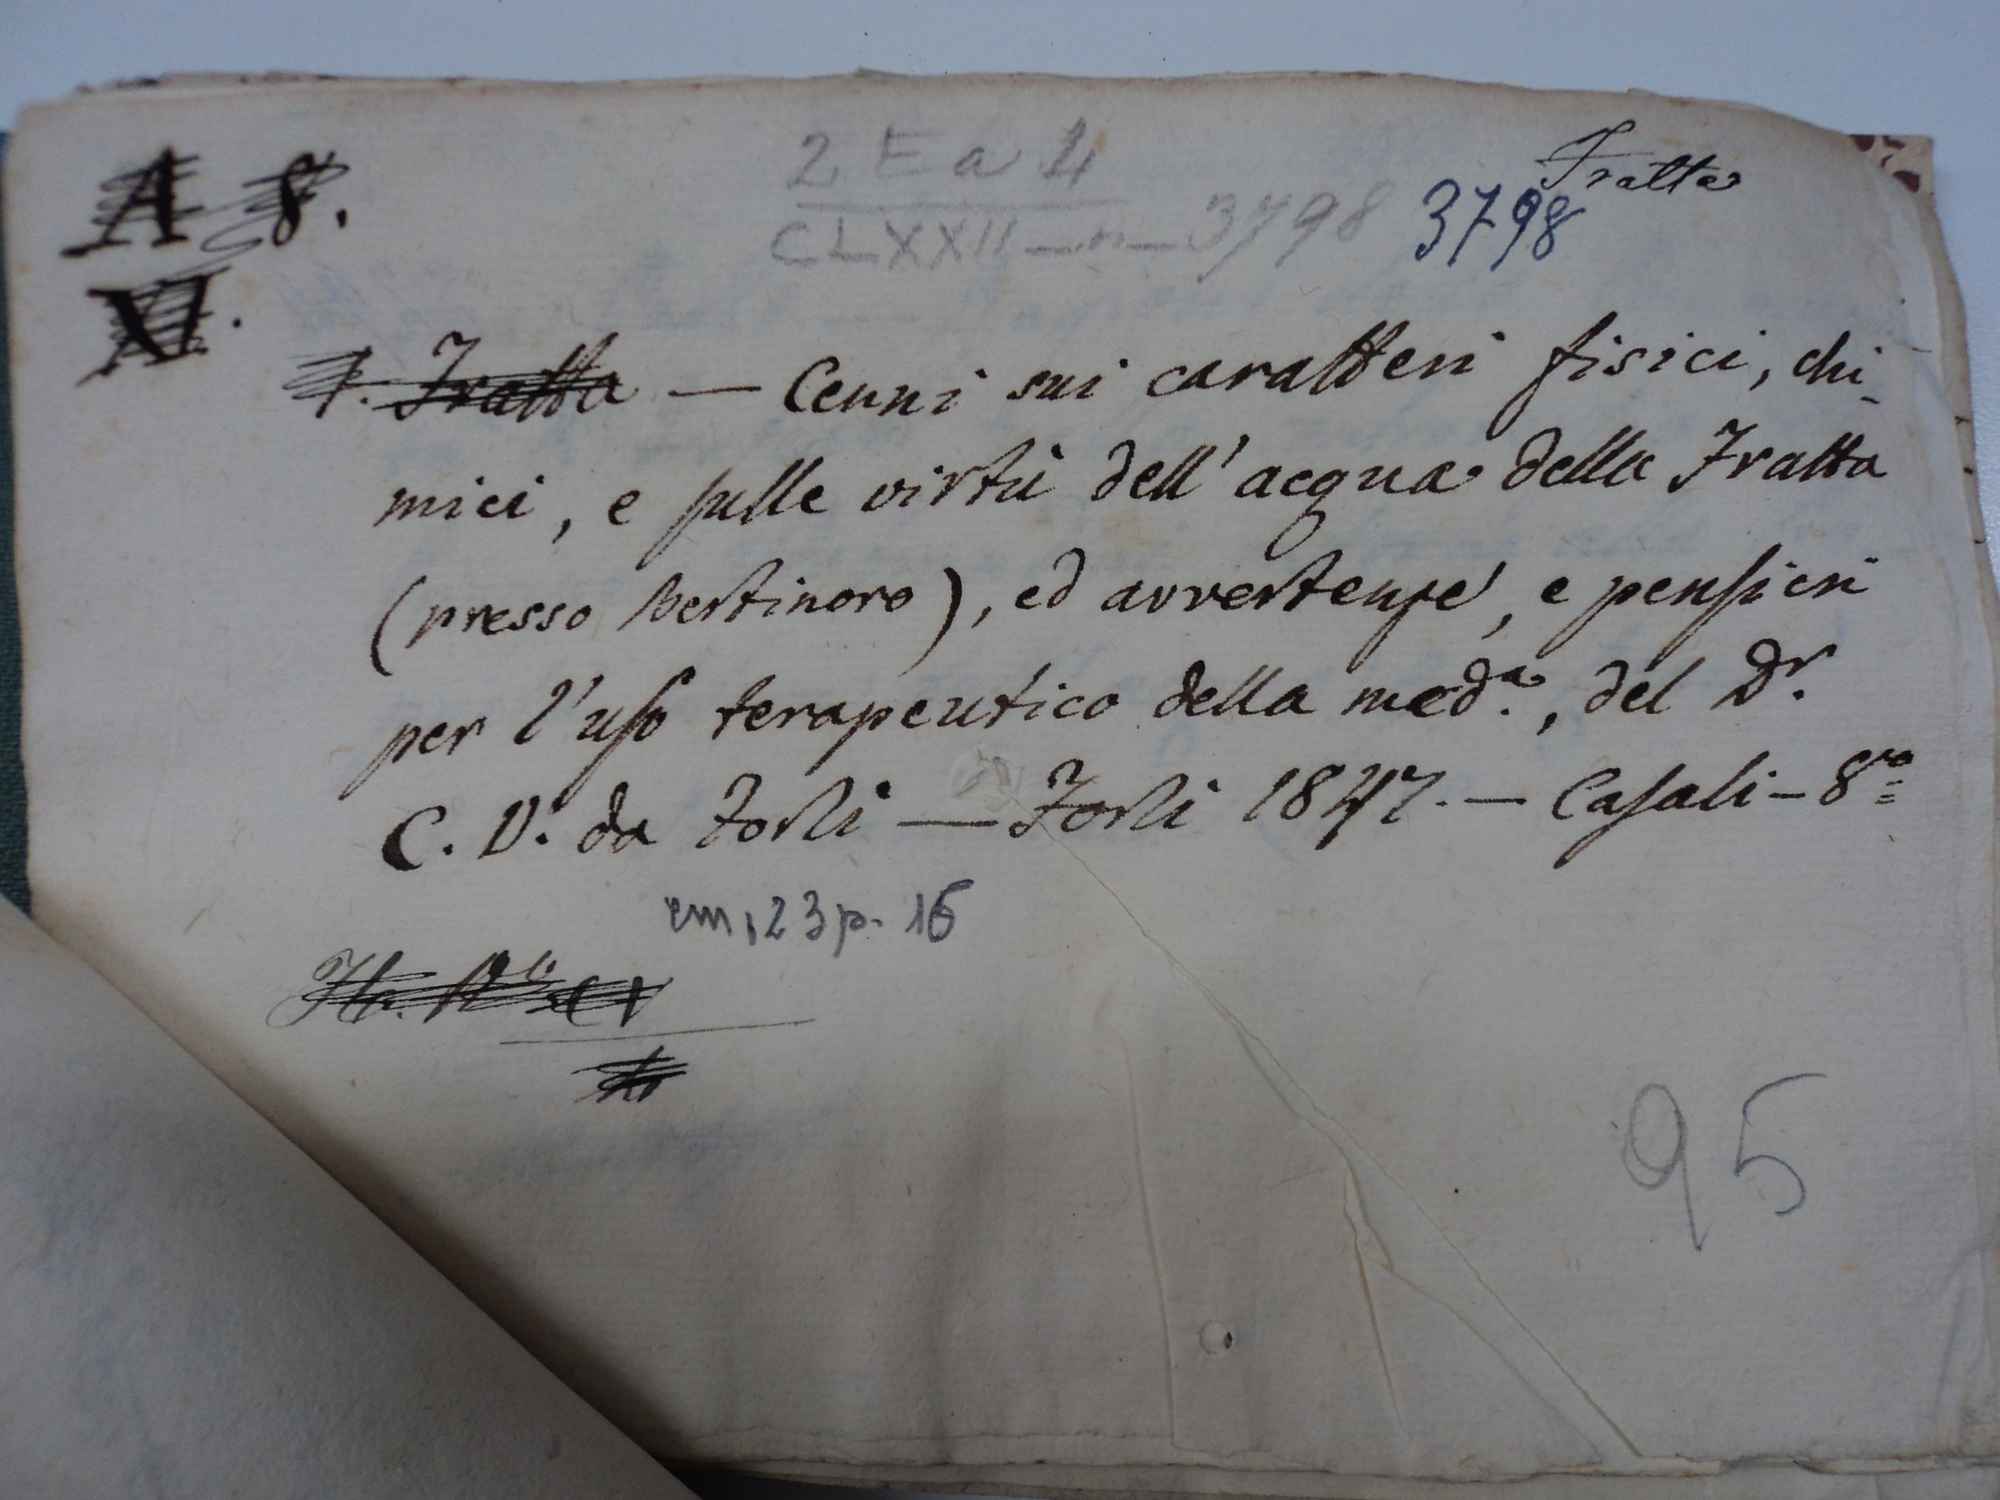 A 8.
2 E a 4
Fratta
CLXXII — n — 3798 3798
XI.
F. Fratta — Cenni sui caratteri fisici, chi-
mici, e sulle virtù dell'acqua della Fratta
(presso Bertinoro), ed avvertenze, e pensieri
per l'uso terapeutico della med.ª, del Dr.
C. V. da Forlì — Forlì 1847. — Casali - 8ro =
cm, 23 p. 16
95